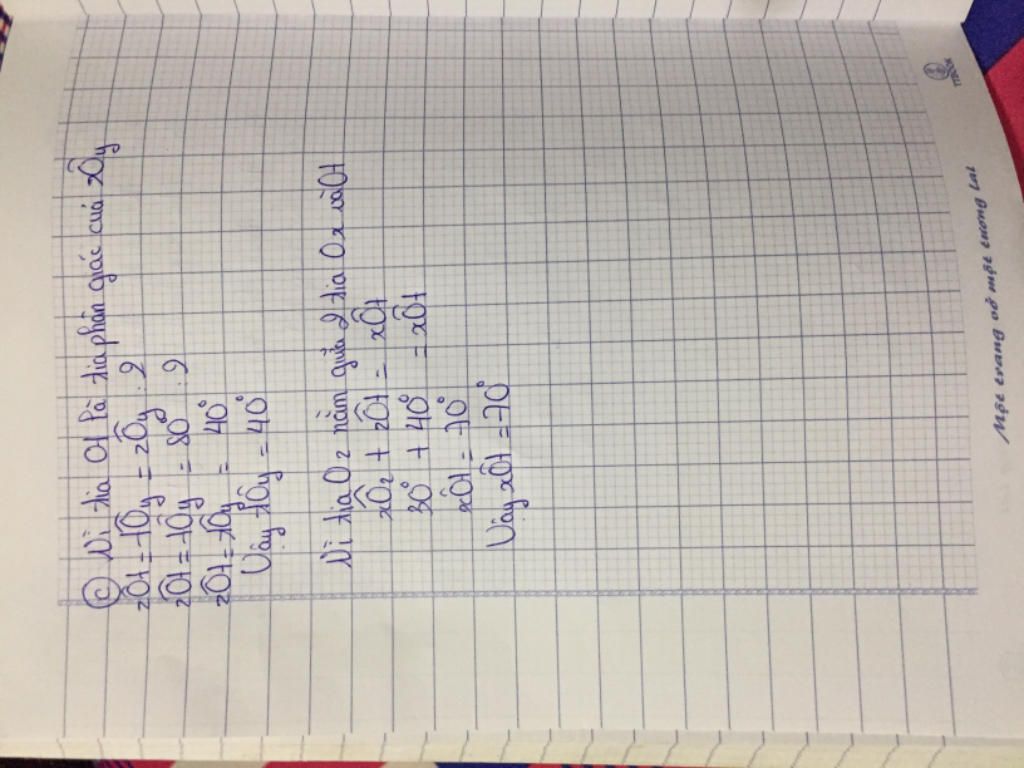 c) Vì tia Ot là tia phân giác của zÔy
zÔt = tÔy = zÔy : 2
zÔt = tÔy = 80° : 2
zÔt = tÔy = 40°
Vậy tÔy = 40°
Vì tia Oz nằm giữa 2 tia Ox và Ot
xÔz + zÔt = xÔt
30° + 40° = xÔt
xÔt = 70°
Vậy xÔt = 70°
Một trang vở một tương lai